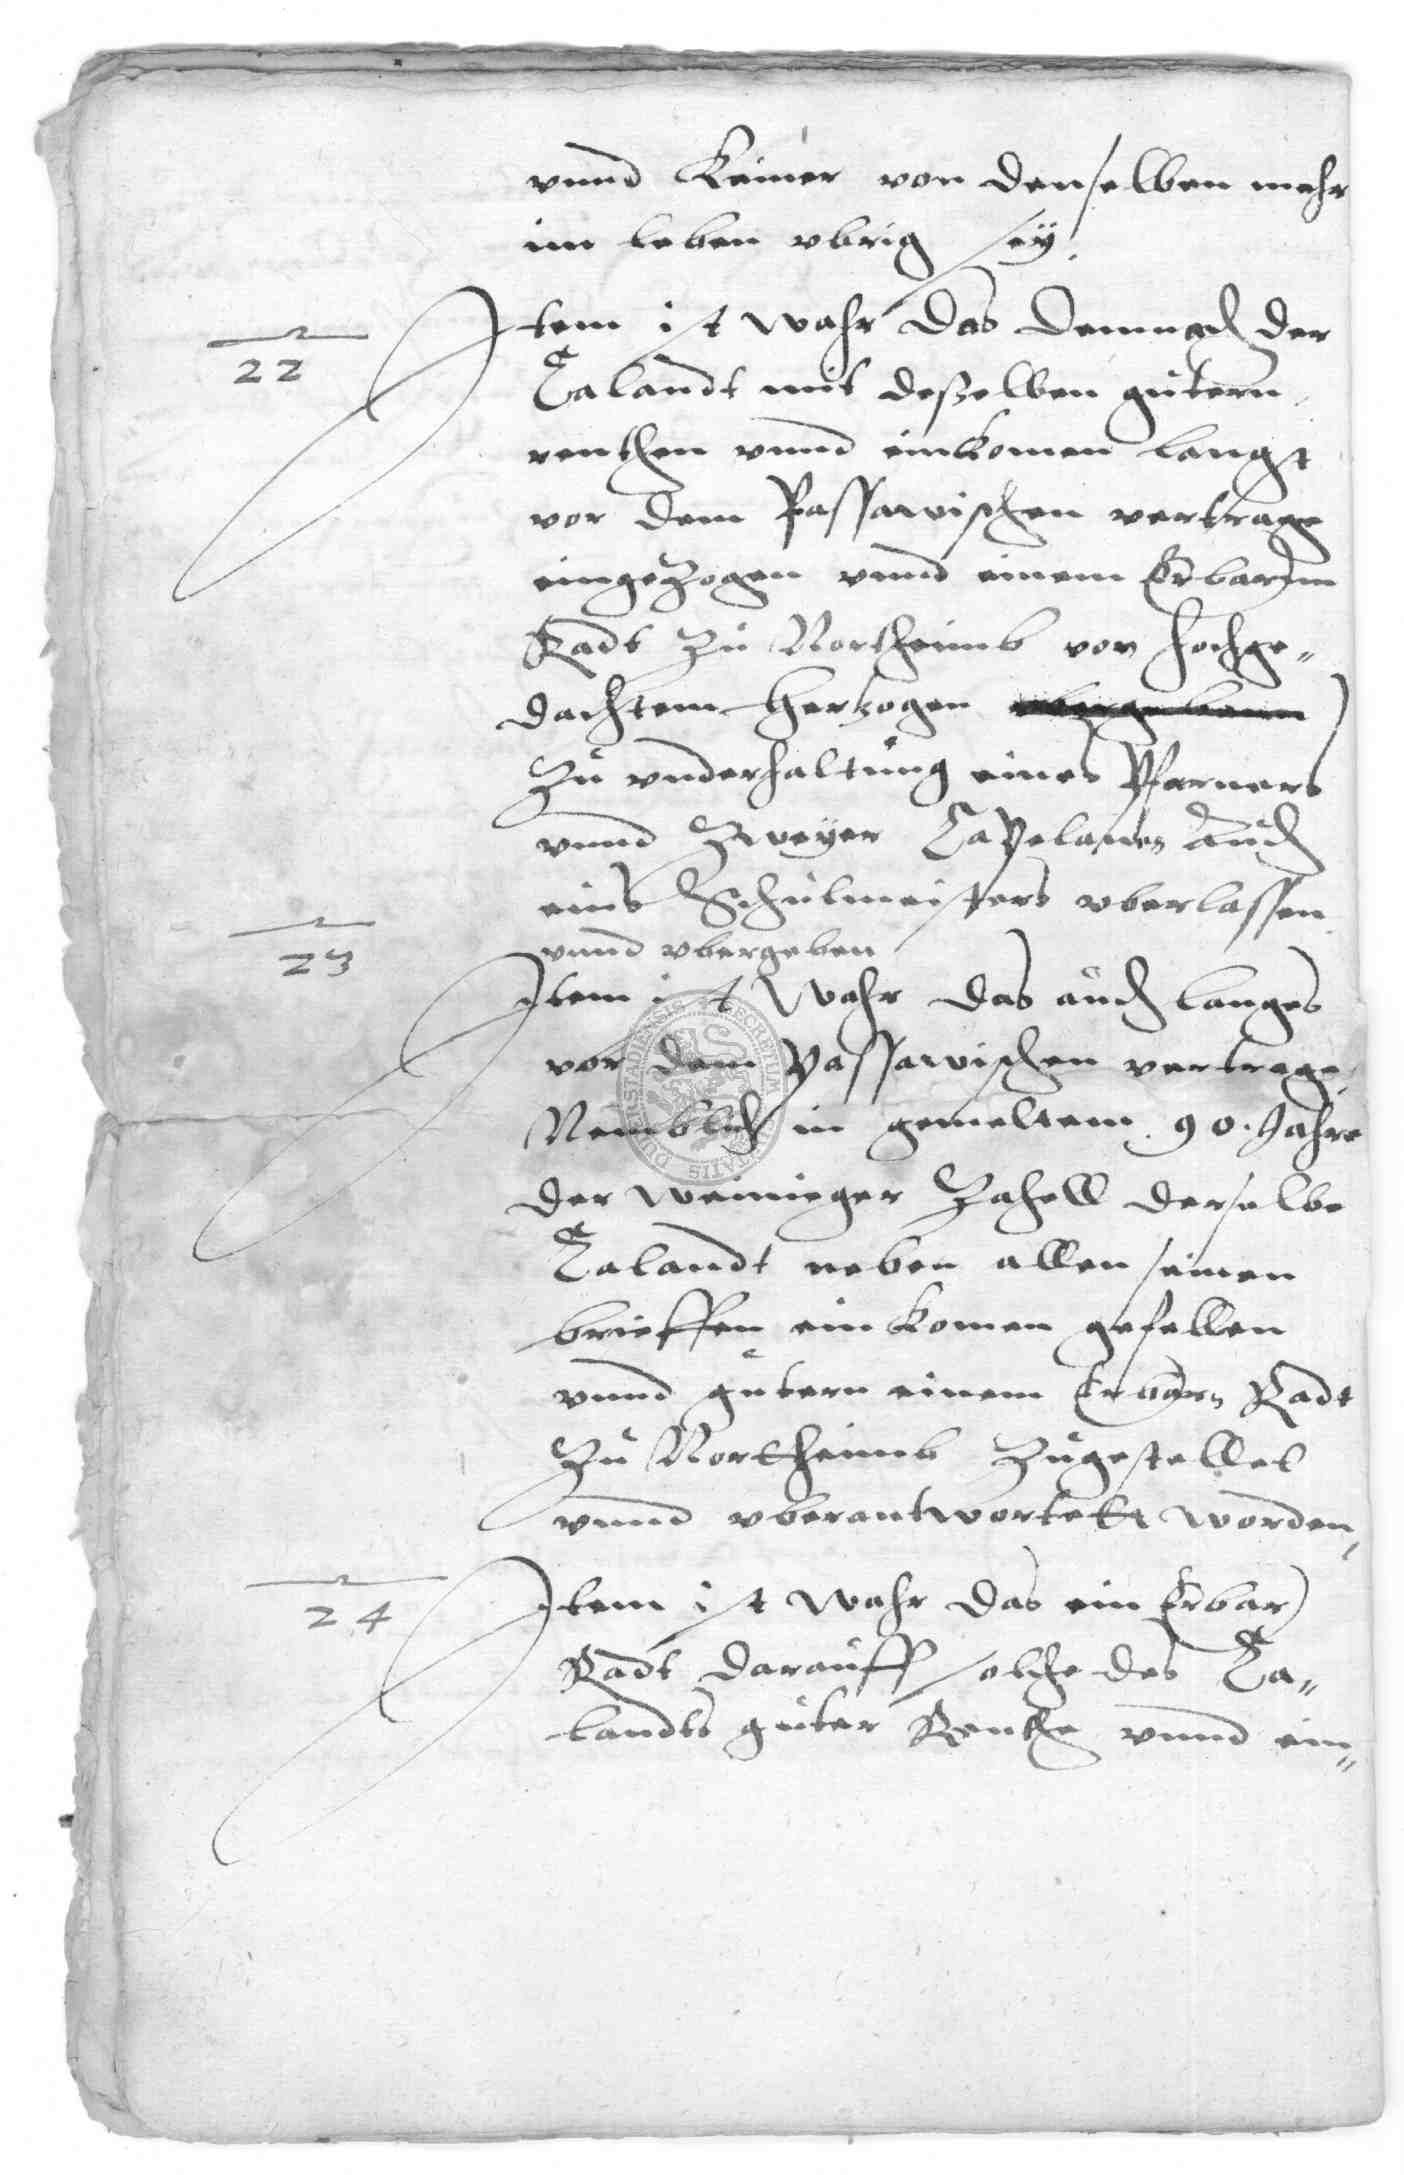 vnnd Keiner von denselben mehr
im leben vbrig sey.
22
Item ist wahr das demnach der
Calandt mit deßelben gütern,
renthen vnnd einkomen langst
vor dem Passawischen vertrage
eingezogen vnnd einem Erbarnn
Radt zu Northeimb von hochge„
dachtem Hertzogen vbergeben
zu vnderhaltung eines Pfarners
vnnd zweyer Capelanen auch
eins Schulmeisters vberlassen
vnnd vbergeben
23
Item ist Wahr das auch langes
vor dem Passawischen vertrage,
Nemblich in gemeltem 90. Jahre
der weinieger Zahell derselbe
Calandt neben allen seinen
brieffen einkomen gefellen
vnnd gütern einem Erbarn Radt
zu Northeimb zugestellet
vnnd vberantwortett worden,
24
Item ist wahr das ein Erbar
Radt darauff solche des Ca„
landts güter Renthe vnnd ein„
DUDERSTADIENSIS SECRETUM CIVITATIS